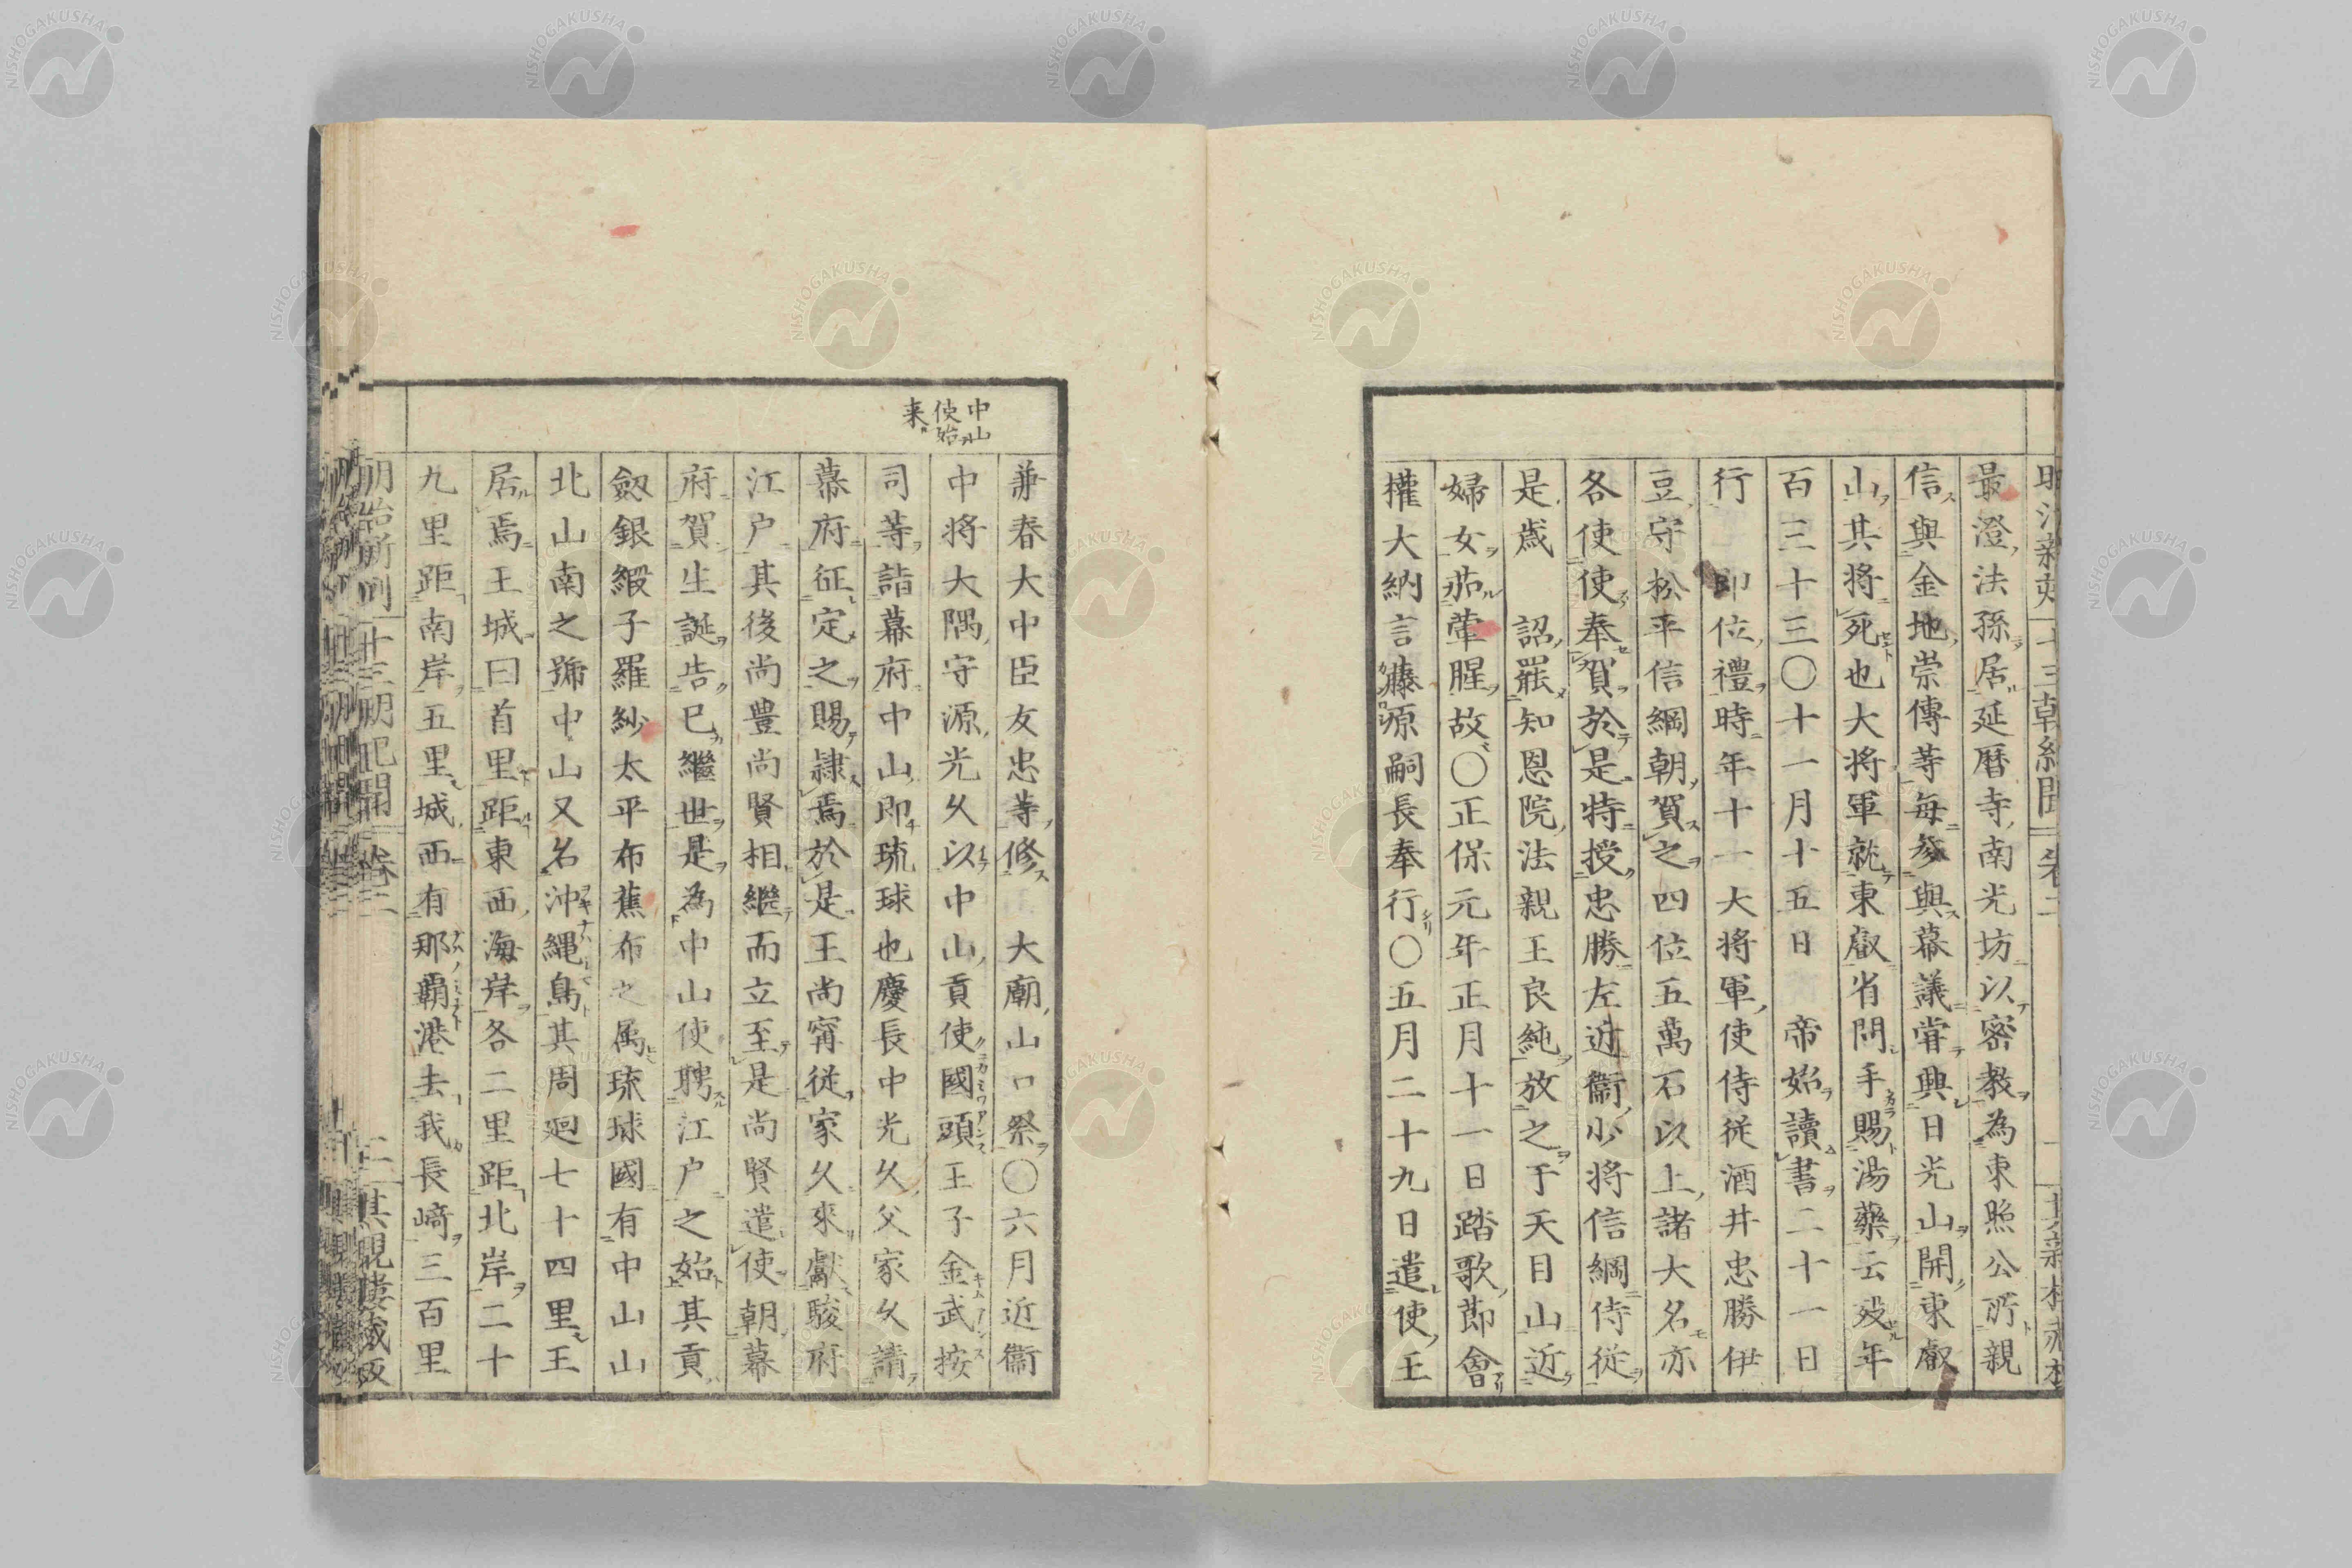 最澄法孫居延暦寺南光坊以密教為東照公所親
信與金地崇傳等每參與幕議甞興日光山開東叡
山其將死也大將軍就東叡省問手賜湯藥云歿年
百三十三〇十一月十五日　帝始讀書二十一日
行　即位禮時年十一大將軍使侍從酒井忠勝伊
豆守松平信綱朝賀之四位五萬石以上諸大名亦
各使使奉賀於是特授忠勝左近衞少將信綱侍從
是歳　詔罷知恩院法親王良純放之于天目山近
婦女茹葷腥故〇正保元年正月十一日踏歌節會
權大納言藤原嗣長奉行〇五月二十九日遣使王
中山
使始
来
兼春大中臣友忠等修　大廟山口祭〇六月近衞
中將大隅守源光久以中山貢使國頭王子金武按
司等詣幕府中山即琉球也慶長中光久父家久請
幕府征定之賜隷焉於是王尚甯從家久來獻駿府
江戸其後尚豊尚賢相繼而立至是尚賢遣使朝幕
府賀生誕告已繼世是為中山使聘江戸之始其貢
劔銀緞子羅紗太平布蕉布之属琉球國有中山山
北山南之號中山又名沖縄島其周廻七十四里王
居焉王城曰首里距東西海岸各二里距北岸二十
九里距南岸五里城西有那覇港去我長﨑三百里